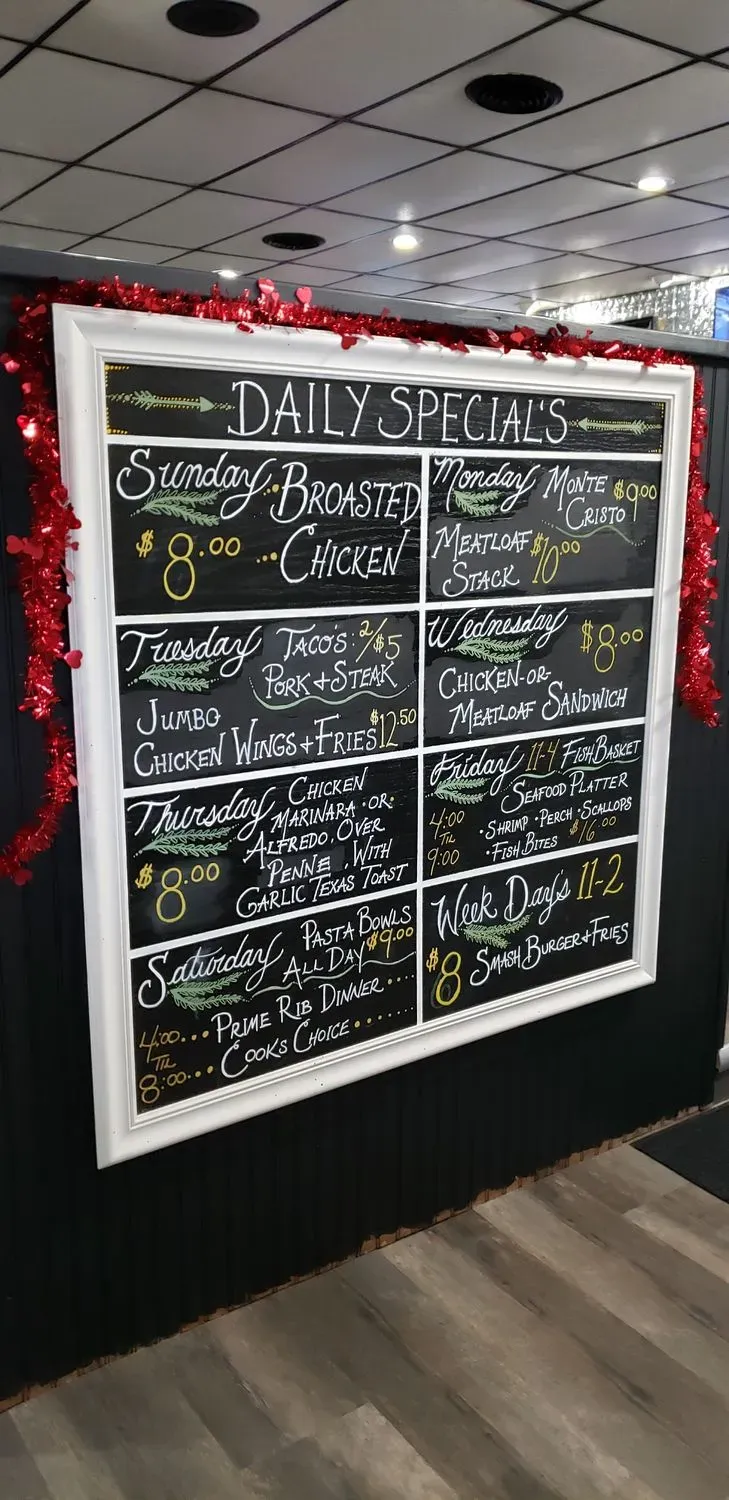 DAILY SPECIAL'S
Sunday BROASTED
$8.00 CHICKEN
Monday MONTE $9.00
CRISTO
MEATLOAF $10.00
STACK
Tuesday TACO'S: 2/$5
PORK + STEAK
JUMBO
CHICKEN WINGS + FRIES $12.50
Wednesday $8.00
CHICKEN-OR-
MEATLOAF SANDWICH
Thursday CHICKEN
MARINARA ·OR·
ALFREDO, OVER
$8.00 PENNE, WITH
GARLIC TEXAS TOAST
Friday 11-4 FISH BASKET
SEAFOOD PLATTER
4:00 TIL 9:00 ·SHRIMP ·PERCH ·SCALLOPS
·FISH BITES $16.00
Saturday PASTA BOWLS
ALL DAY $9.00
4:00... PRIME RIB DINNER....
TIL
8:00... COOKS CHOICE.......
Week Day's 11-2
$8 SMASH BURGER + FRIES